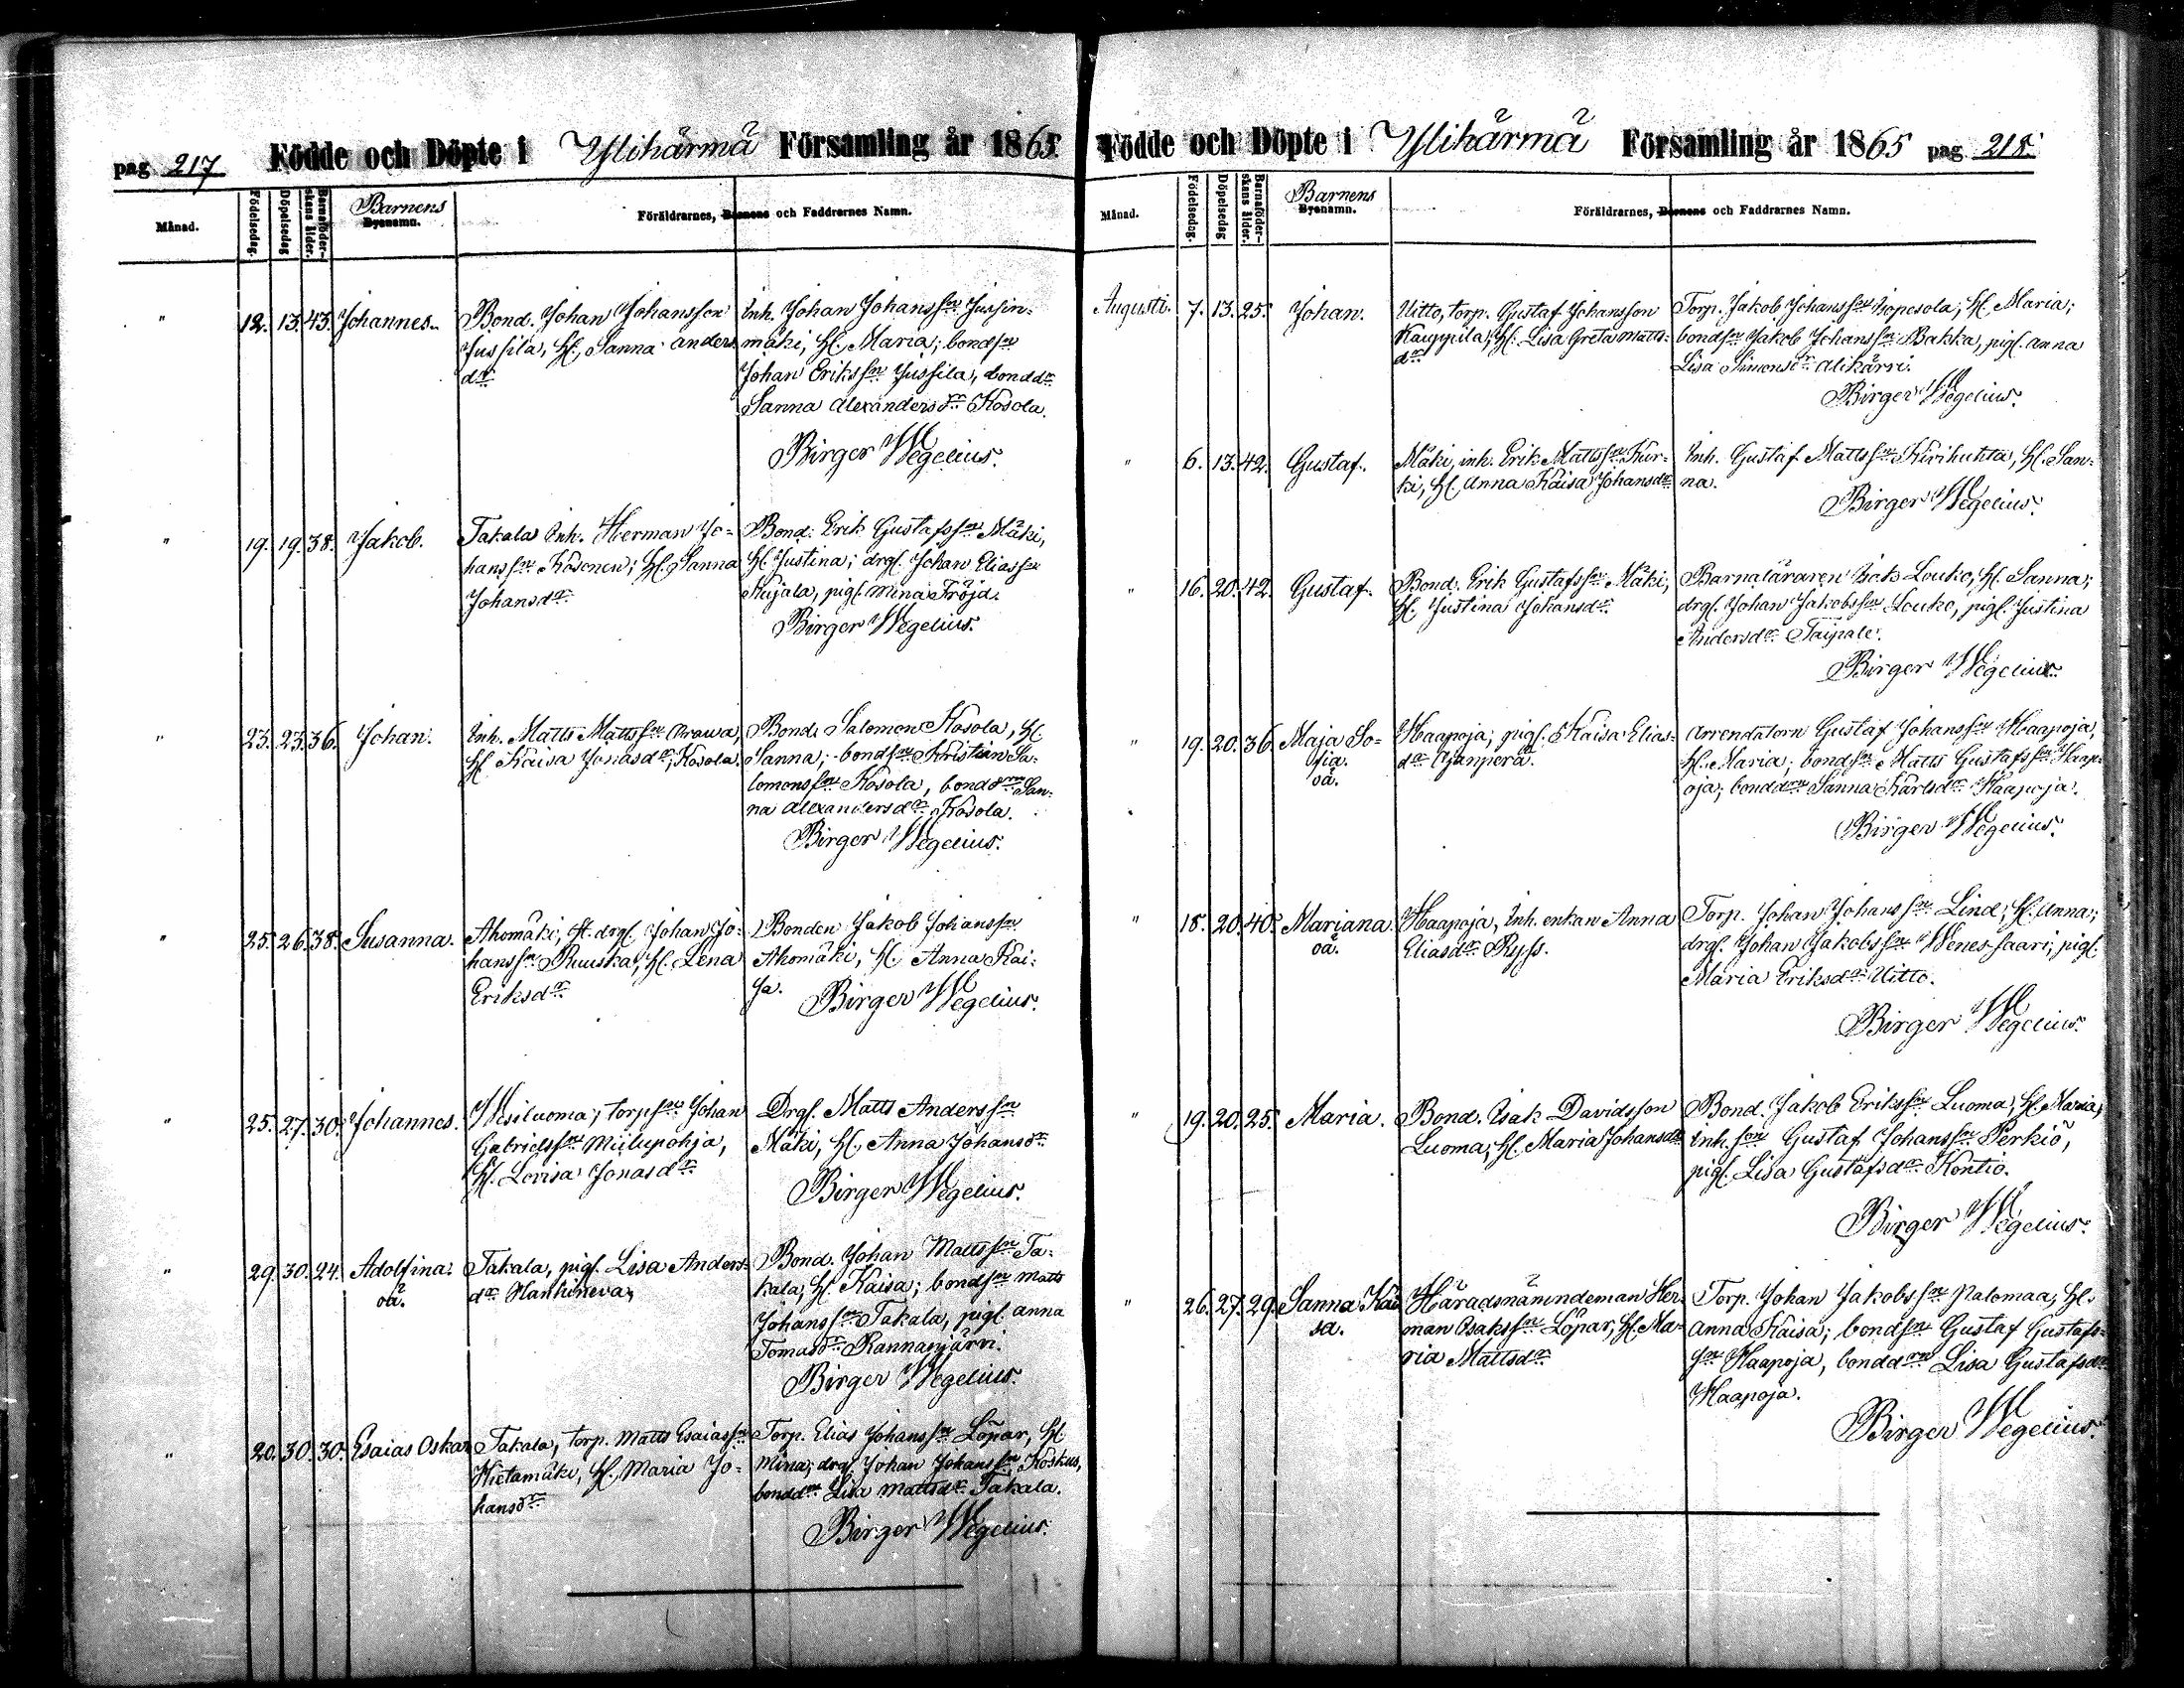 pag 217 Födde och Döpte i Ylihärmä Församling år 1865
Månad.
Födelsedag.
Döpelsedag
Barnaföder-
skans ålder.
Barnens
Byanamn.
Föräldrarnes, Barnens och Faddrarnes Namn.
" 12. 13. 43. Johannes.
Bond. Johan Johansson
Jussila, H., Sanna Anders
dr
Inh. Johan Johanssn Jussin-
mäki, H., Maria; bondsn
Johan Erikssn Jussila, bonddr
Sanna Alexandersdr Kosola.
Birger Wegelius.
" 19. 19. 38. Jakob.
Takala Inh. Herman Jo-
hanssn Kosonen; H. Sanna
Johansdr
Bond. Erik Gustafssn Mäki,
H. Justina; drgl. Johan Eliassn
Kujala, pigl. Mina Fröjd.
Birger Wegelius.
" 23. 23. 36. Johan.
Inh. Matts Mattssn
H. Kaisa Jonasdr, Kosola.
Bond. Salomon Kosola, H.
Sanna; bondsn Kristian Sa-
lomonssn Kosola, bonddrn San-
na Alexandersdr Kosola.
Birger Wegelius.
" 25. 26. 38. Susanna.
Ahomäki, ft. drgl. Johan Jo-
hanssn Ruuska, H. Lena
Eriksdr
Bonden Jakob Johanssn
Ahomäki, H. Anna Kai-
sa. Birger Wegelius.
" 25. 27. 30. Johannes.
Wesiluoma, torpsn Johan
Gabrielssn Miilupohja,
H. Lovisa Jonasdr
Drgl. Matts Anderssn
Mäki, H., Anna Johansdr
Birger Wegelius.
" 29. 30. 24. Adolfina.
oä.
Takala, pigl. Lisa Anders-
dr Hanhineva,
Bond. Johan Mattssn Ta-
kala, H. Kaisa; bondsn Matts
Johanssn Takala, pigl. Anna
Tomasdr Rannanjärvi.
Birger Wegelius.
" 20. 30. 30. Esaias Oskar
Takala, torp. Matts Esaiassn
Hietamäki, H., Maria Jo-
hansdr
Torp. Elias Johanssn Löpar, H.
Mina; drgl. Johan Johanssn Koskus,
bonddrn Lisa Mattsdr Takala.
Birger Wegelius.
Födde och Döpte i Ylihärmä Församling år 1865 pag 218
Månad.
Födelsedag.
Döpelsedag
Barnaföder-
skans ålder.
Barnens
Byanamn.
Föräldrarnes, Barnens och Faddrarnes Namn.
Augusti. 7. 13. 25. Johan.
Uitto, torp. Gustaf Johansson
Kauppila; H. Lisa Greta Matts-
dr
Torp. Jakob Johanssn Isopesola, H. Maria;
bondsn Jakob Johanssn Bakka, pigl. Anna
Lisa Simonsdr Alikärri.
Birger Wegelius.
" 6. 13. 42. Gustaf.
Mäki, inh. Erik Mattssn Kur-
ki, H. Anna Kaisa Johansdr
Inh. Gustaf Mattssn Kirihuhta, H. San-
na.
Birger Wegelius.
" 16. 20. 42. Gustaf.
Bond. Erik Gustafssn Mäki,
H. Justina Johansdr
Barnaläraren Isak Louko, H. Sanna;
drgl. Johan Jakobssn Louko, pigl. Justina
Andersdr Taipale.
Birger Wegelius.
" 19. 20. 36. Maja So-
fia.
oä.
Haapoja; pigl. Kaisa Elias-
dr
Arrendatorn Gustaf Johanssn Haapoja,
H. Maria; bondsn Matts Gustafssn Haap-
oja; bonddrn Sanna Karlsdr Haapoja.
Birger Wegelius.
" 18. 20. 40. Mariana
oä.
Haapoja, Inh. enkan Anna
Eliasdr Ryss.
Torp. Johan Johanssn Lind; H. Anna;
drgl. Johan Jakobssn Wenessaari; pigl.
Maria Eriksdr Uitto.
Birger Wegelius.
" 19. 20. 25. Maria.
Bond. Isak Davidsson
Luoma, H. Maria Johansdr
Bond. Jakob Erikssn Luoma, H. Maria;
inh. sn Gustaf Johanssn Perkiö,
pigl. Lisa Gustafsdr Kontio.
Birger Wegelius.
" 26. 27. 29. Sanna Kai-
sa.
Häradsnämndeman Her-
man Isakssn Löpar, H. Ma-
ria Mattsdr
Torp. Johan Jakobssn Palomaa, H.
Anna Kaisa; bondsn Gustaf Gustafs-
sn Haapoja, bonddrn Lisa Gustafsdr
Haapoja.
Birger Wegelius.